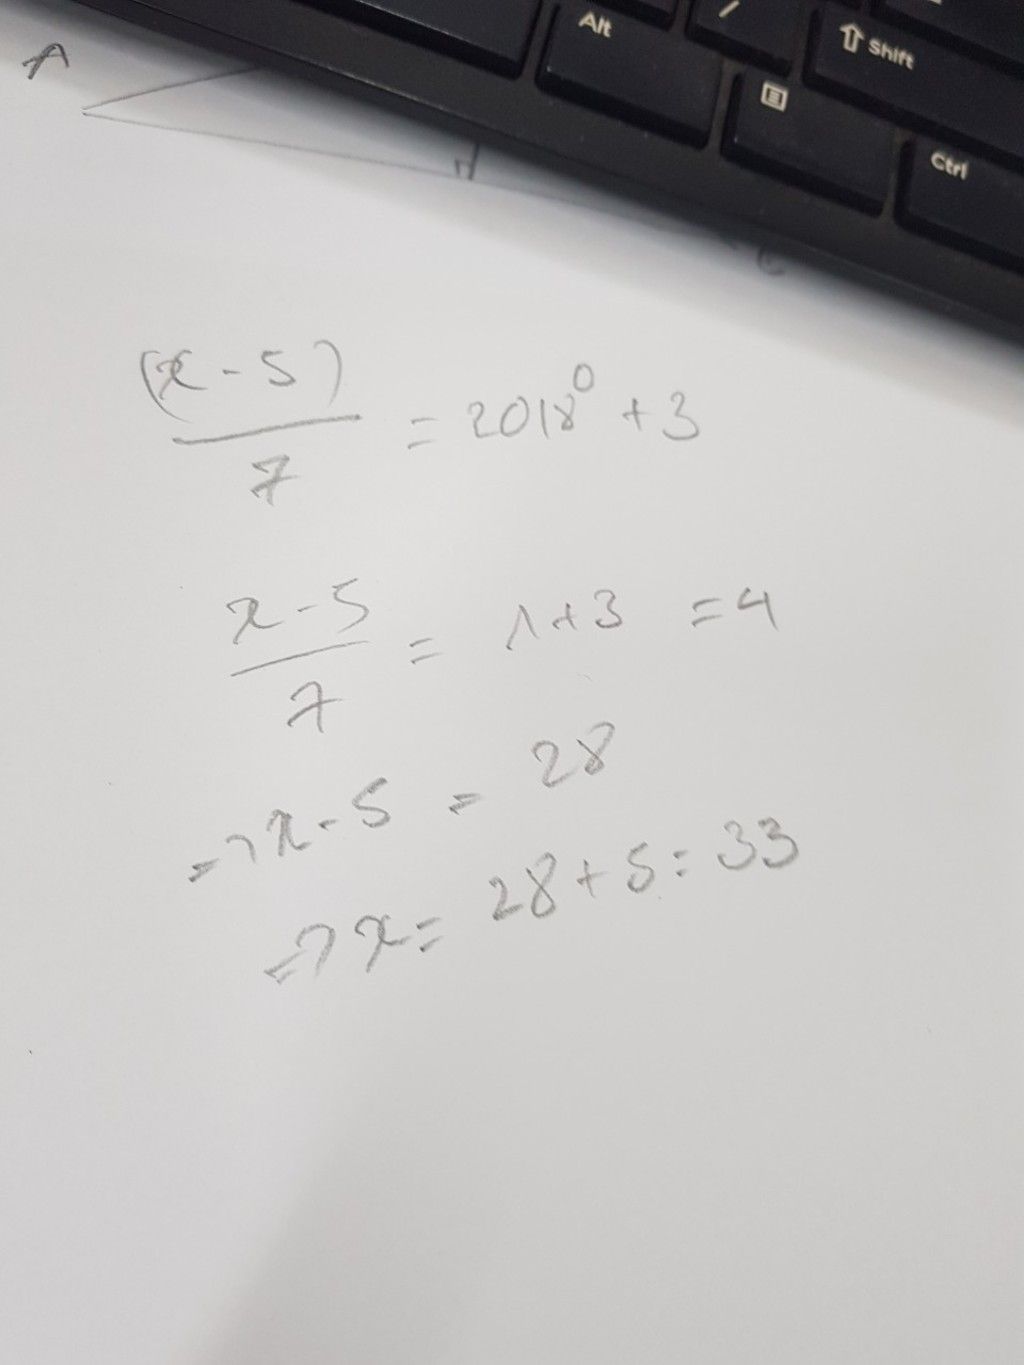 Alt
/
⇧ Shift
Ctrl
A
C
(x - 5) / 7 = 2018⁰ + 3
x - 5 / 7 = 1 + 3 = 4
=> x - 5 = 28
=> x = 28 + 5 = 33